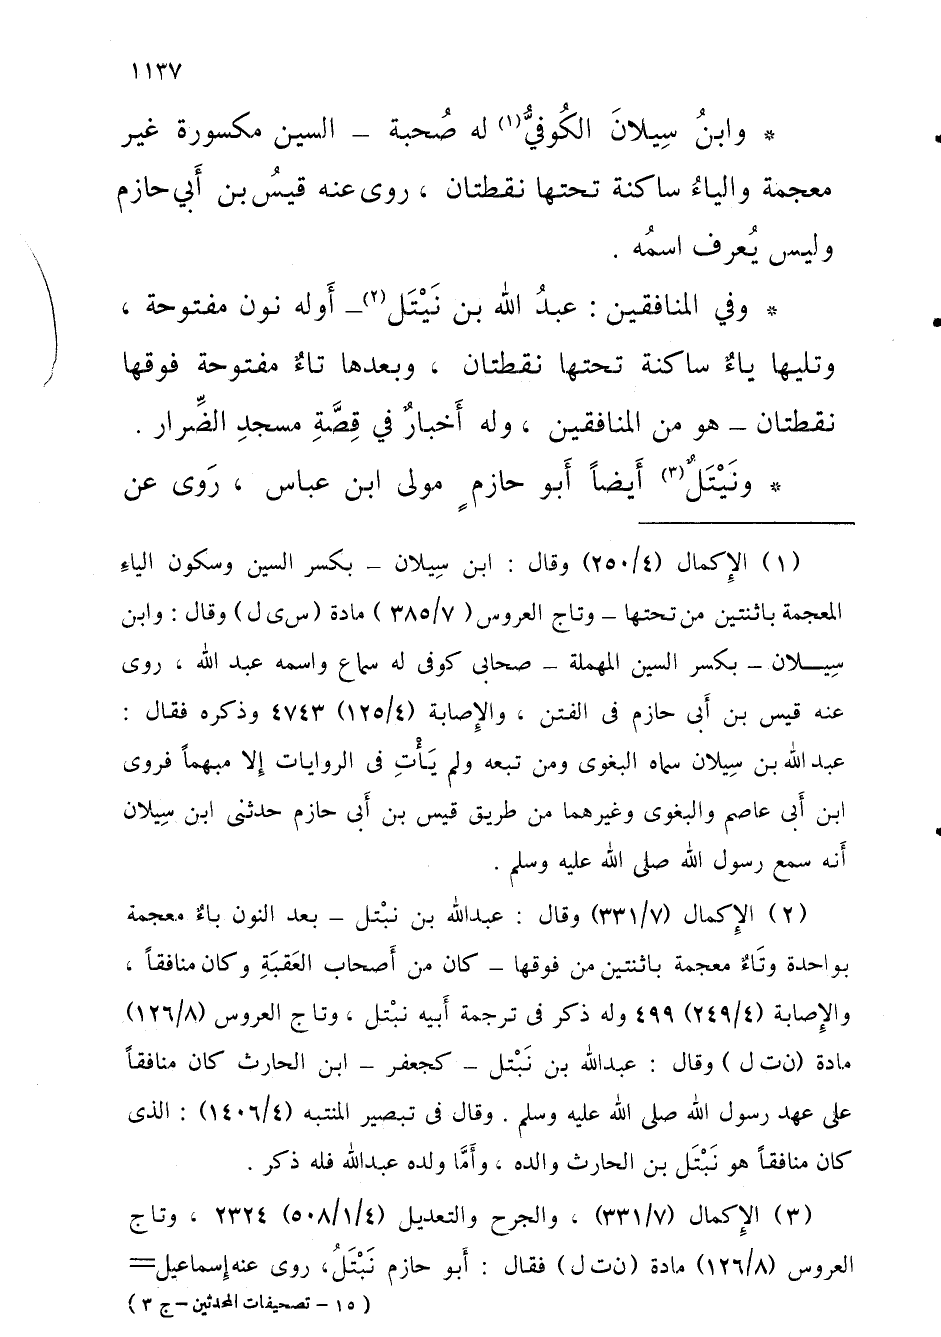 ١١٣٧
* وابنُ سِيلانَ الكُوفيُّ(١) له صُحبة ـ السين مكسورة غير
معجمة والياءُ ساكنة تحتها نقطتان ، روى عنه قيسُ بن أَبي حازم
وليس يُعرف اسمُه .
* وفي المنافقين : عبدُ الله بن نَيْتَل(٢) ـ أَوله نون مفتوحة ،
وتليها ياءٌ ساكنة تحتها نقطتان ، وبعدها تاءٌ مفتوحة فوقها
نقطتان ـ هو من المنافقين ، وله أَخبارٌ في قِصَّةِ مسجدِ الضِّرار .
* ونَيْتَلٌ(٣) أَيضاً أَبو حازمٍ مولى ابن عباس ، رَوى عن
(١) الإكمال (٢٥٠/٤) وقال : ابن سِيلان ـ بكسر السين وسكون الياءِ
المعجمة باثنتين من تحتها ـ وتاج العروس (٣٨٥/٧) مادة (س ى ل) وقال : وابن
سِيـلان ـ بكسر السين المهملة ـ صحابى كوفى له سماع واسمه عبد الله ، روى
عنه قيس بن أَبى حازم فى الفتن ، والإصابة (١٢٥/٤) ٤٧٤٣ وذكره فقال :
عبد الله بن سِيلان سماه البغوى ومن تبعه ولم يَأْتِ فى الروايات إلا مبهماً فروى
ابن أَبى عاصم والبغوى وغيرهما من طريق قيس بن أَبى حازم حدثنى ابن سِيلان
أَنه سمع رسول الله صلى الله عليه وسلم .
(٢) الإكمال (٣٣١/٧) وقال : عبدالله بن نبْتل ـ بعد النون باءٌ معجمة
بواحدة وتَاءٌ معجمة باثنتين من فوقها ـ كان من أَصحاب العَقبَةِ وكان منافقاً ،
والإصابة (٢٤٩/٤) ٤٩٩ وله ذكر فى ترجمة أَبيه نبْتل ، وتاج العروس (١٢٦/٨)
مادة (ن ت ل) وقال : عبدالله بن نَبْتل ـ كجعفر ـ ابن الحارث كان منافقاً
على عهد رسول الله صلى الله عليه وسلم . وقال فى تبصير المنتبه (١٤٠٦/٤) : الذى
كان منافقاً هو نَبْتَل بن الحارث والده ، وأَمَّا ولده عبدالله فله ذكر .
(٣) الإكمال (٣٣١/٧) ، والجرح والتعديل (٥٠٨/١/٤) ٢٣٢٤ ، وتاج
العروس (١٢٦/٨) مادة (ن ت ل) فقال : أَبو حازم نَبْتَلُ، روى عنه إسماعيل =
(١٥ - تصحيفات المحدثين - ج ٣)